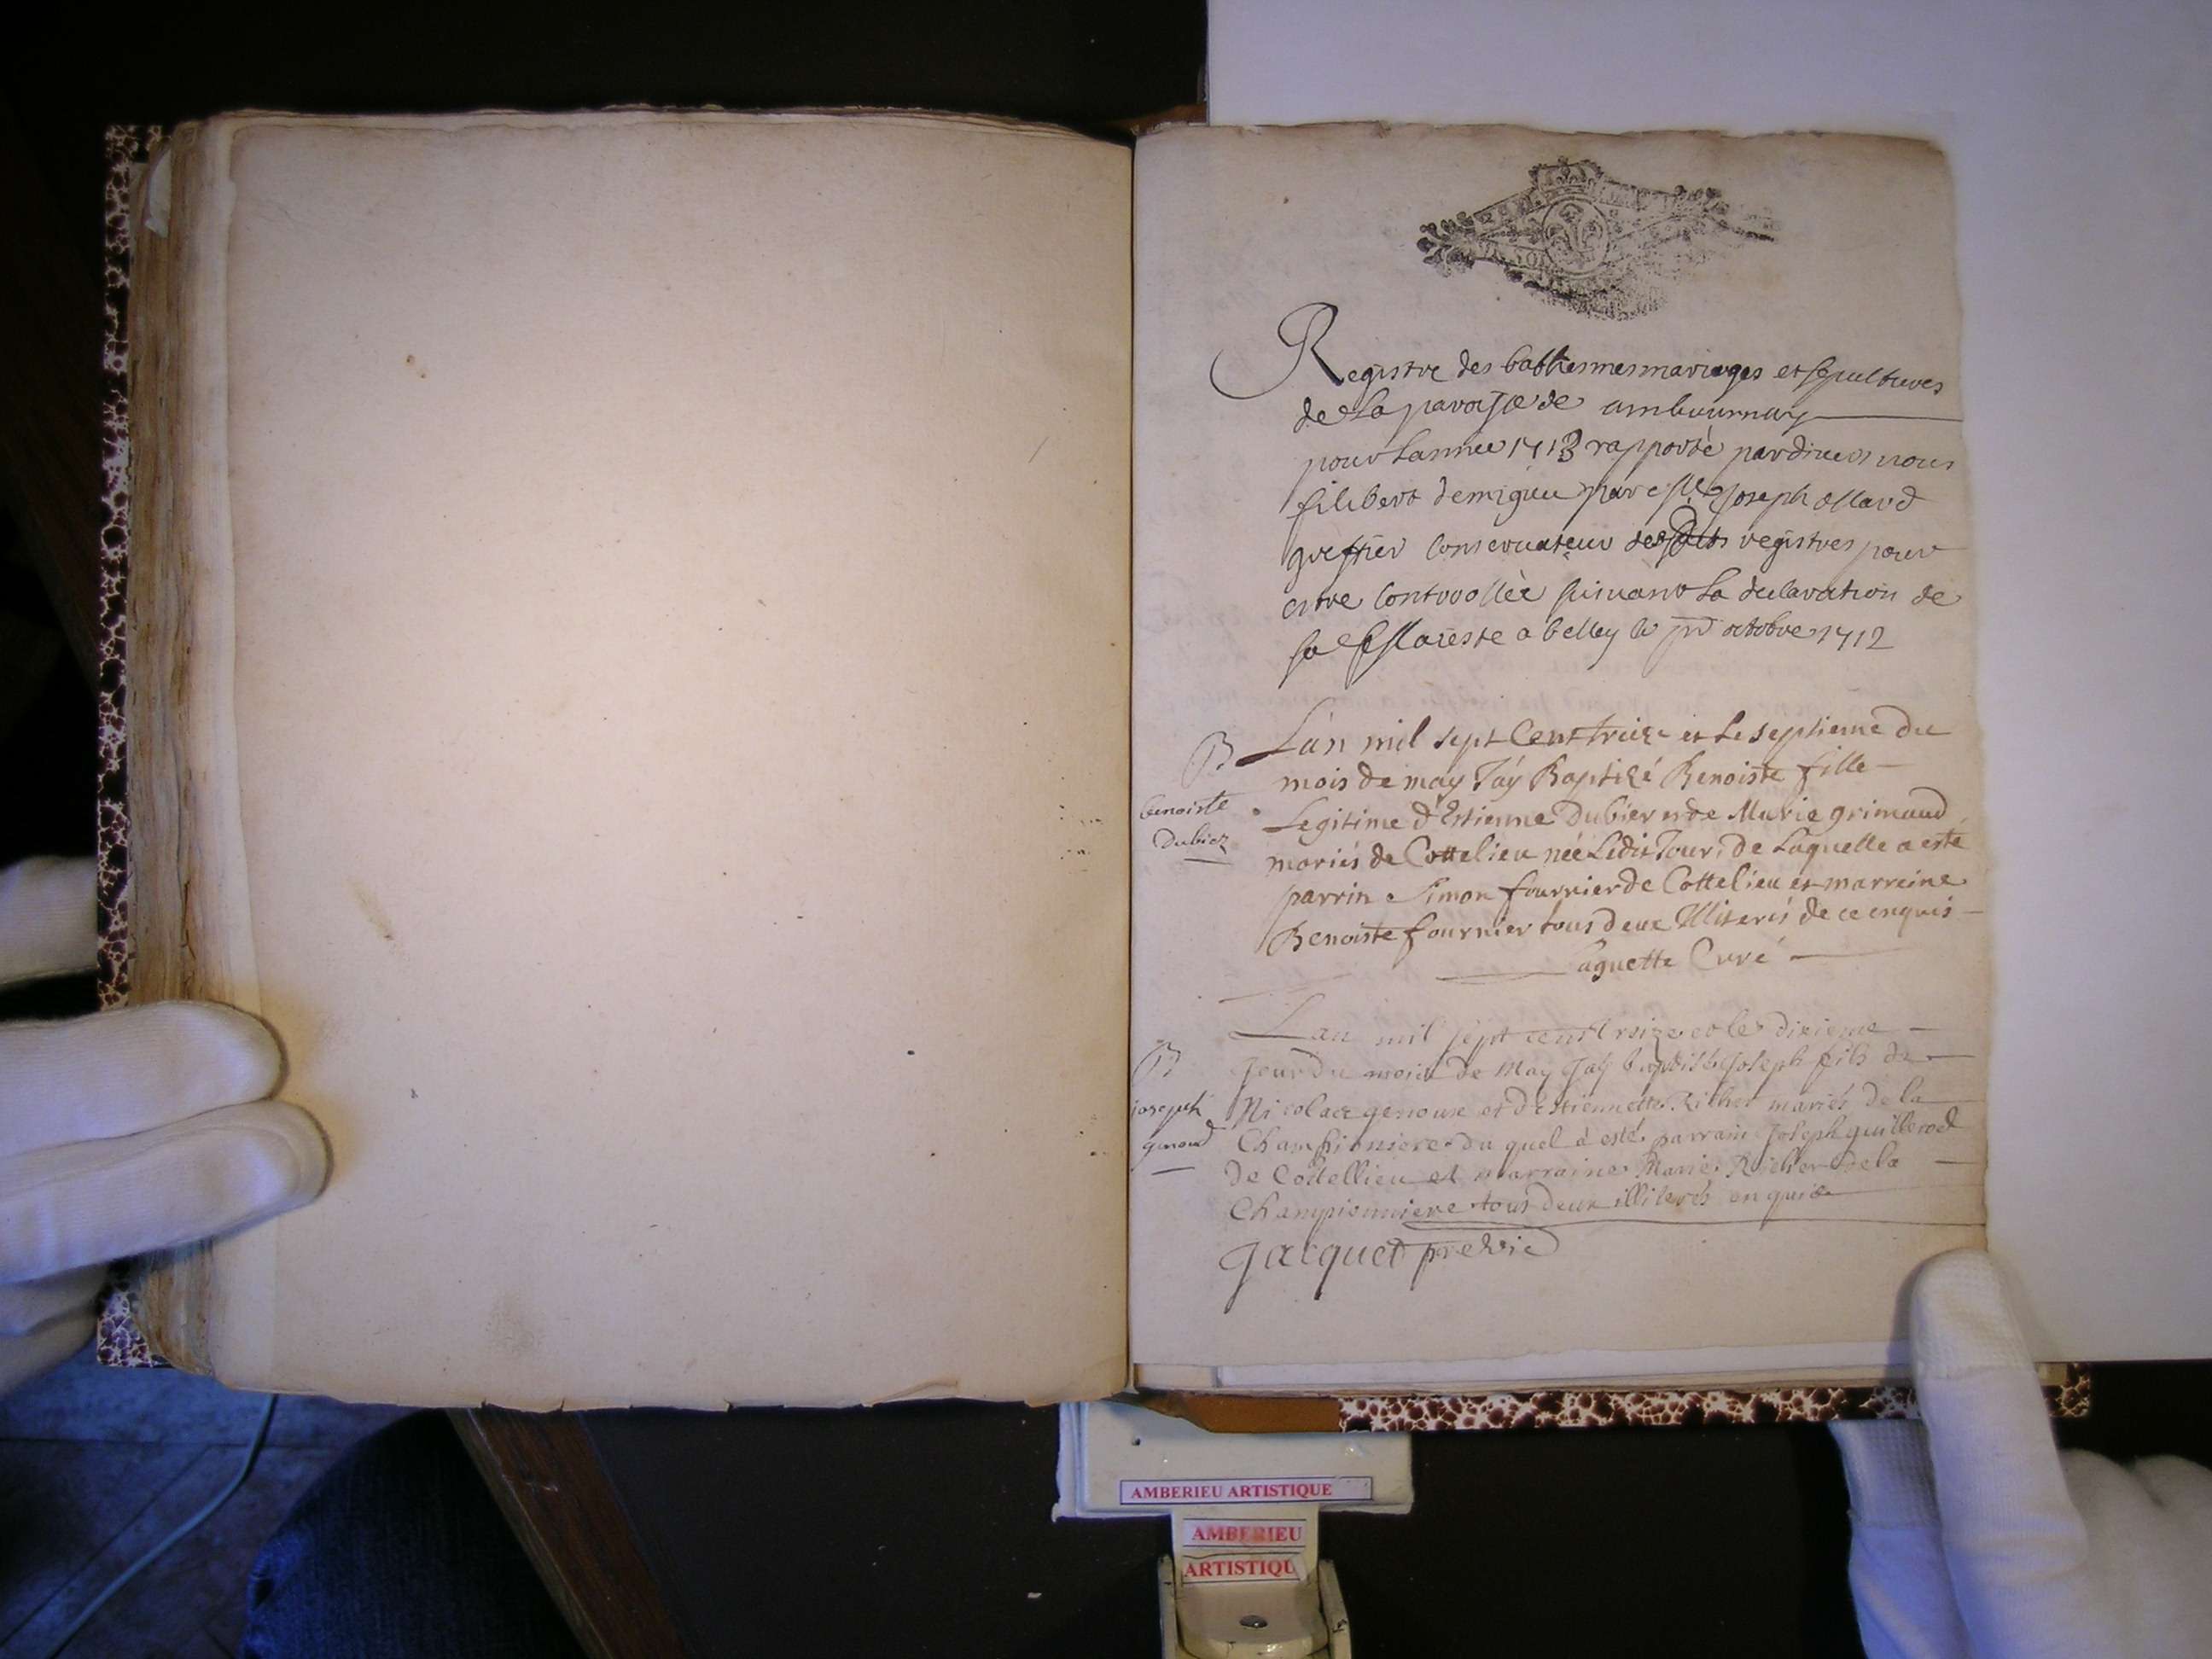 Registre des battesmes mariages et sepultures
de La paroisse de ambournay
pour Lannee 1713 rapporté pardevers nous
filibert demigieu par Me Joseph ollard
greffier Conservateur desdits registres pour
estre Controollèe suivant La declaration de
sa Majeste a belley le pr octobre 1712
B
benoiste
Dubiez
L'an mil sept Cent treize et Le septieme du
mois de may J'ay Baptizé Benoiste fille
Legitime d'Estienne Dubier et de Marie grimaud
mariés de Cottelieu née Ledit Jour, de Laquelle a esté
parrin Simon fournier de Cottelieu et marreine
Benoiste fournier tous deux Illiterés de ce enquis
Curé
B
joseph
genoud
Lan mil sept cent treize et le dixieme
Jour du mois de May Jay baptisé Joseph fils de
Nicolas genoux et d'Estiennette Richer mariés de la
Championiere du quel à esté parrain Joseph guillerod
de Cottellieu et marraine Marie Richer de la
Championniere tous deux illiterés enquis
Jacquet
AMBERIEU ARTISTIQUE
AMBERIEU
ARTISTIQU